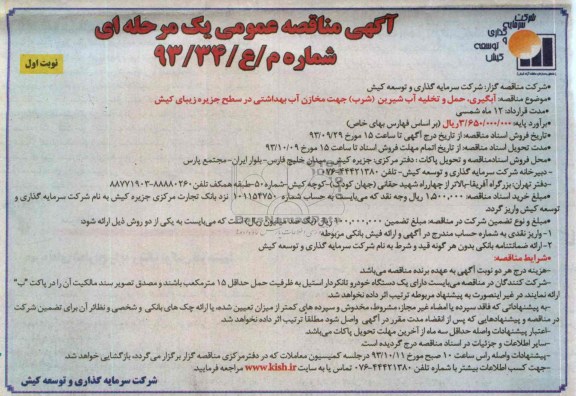 آگهی مناقصه عمومی یک مرحله ای
شماره م/ع/۹۳/۳۴
نوبت اول
شرکت
سرمایه
گذاری
و
توسعه
کیش
•شرکت مناقصه گزار: شرکت سرمایه گذاری و توسعه کیش
•موضوع مناقصه: آبگیری، حمل و تخلیه آب شیرین (شرب) جهت مخازن آب بهداشتی در سطح جزیره زیبای کیش
•مدت قرارداد: ۱۲ ماه شمسی
•برآورد پایه: ۳/۶۵۰/۰۰۰/۰۰۰ریال (بر اساس فهارس بهای خاص)
•تاریخ فروش اسناد مناقصه: از تاریخ درج آگهی تا ساعت ۱۵ مورخ ۹۳/۰۹/۲۹
•مدت تحویل اسناد مناقصه: از تاریخ اتمام مهلت فروش اسناد تا ساعت ۱۵ مورخ ۹۳/۱۰/۰۹
•محل فروش اسنادمناقصه و تحویل پاکات : دفتر مرکزی: جزیره کیش- میدان خلیج فارس- بلوار ایران-مجتمع پارس
- دبیرخانه شرکت سرمایه گذاری و توسعه کیش- تلفن ۴۴۴۲۱۳۸۰-۰۷۶
-دفتر تهران: بزرگراه آفریقا-بالاتر از چهارراه شهید حقانی (جهان کودک)-کوچه کیش-شماره ۵۰-طبقه همکف تلفن ۸۸۸۸۰۲۶۰-۸۸۷۷۱۹۰۳
•مبلغ خرید اسناد مناقصه: ۱۵۰۰/۰۰۰ ریال وجه نقد که می‌بایست به حساب شماره ۱۰۰۱۱۵۴۷۵۰ نزد بانک تجارت مرکزی جزیره کیش به نام شرکت سرمایه گذاری و
توسعه کیش واریز گردد.
•مبلغ و نوع تضمین شرکت در مناقصه: مبلغ تضمین ریال که می‌بایست به یکی از دو روش ذیل ارائه شود:
۱- واریز نقدی به شماره حساب مندرج در آگهی و ارائه فیش بانکی مربوطه
۲- ارائه ضمانتنامه بانکی بدون هر گونه قید و شرط به نام شرکت سرمایه گذاری و توسعه کیش
•شرایط مناقصه:
-هزینه درج هر دو نوبت آگهی به عهده برنده مناقصه می‌باشد.
-شرکت کنندگان در مناقصه می‌بایست دارای یک دستگاه خودرو تانکردار استیل به ظرفیت حمل حداقل ۱۵ مترمکعب باشند و مصدق تصویر سند مالکیت آن را در پاکت "ب"
ارائه نمایند، در غیر اینصورت به پیشنهاد مربوطه ترتیب اثر داده نخواهد شد.
-به پیشنهاداتی که فاقد سپرده یا امضاء غیر مجاز، مشروط، مخدوش و سپرده های کمتر از میزان تعیین شده، یا ارائه چک های بانکی و شخصی و نظائر آن برای تضمین شرکت
در مناقصه و پیشنهادهایی که پس از انقضاء مدت مقرر در آگهی واصل شود مطلقاً ترتیب اثر داده نخواهد شد.
-اعتبار پیشنهادات واصله حداقل سه ماه از آخرین مهلت تحویل پاکات می‌باشد.
-سایر اطلاعات و جزئیات در اسناد مناقصه درج گردیده است.
-پیشنهادات واصله راس ساعت ۱۰ صبح مورخ ۹۳/۱۰/۱۱ درجلسه کمیسیون معاملات که در دفترمرکزی مناقصه گزار برگزار می‌گردد، بازگشایی خواهد شد.
-جهت کسب اطلاعات بیشتر با شماره تلفن ۴۴۴۲۱۳۸۰-۰۷۶ تماس یا به سایت www.kish.ir مراجعه فرمایید.
شرکت سرمایه گذاری و توسعه کیش